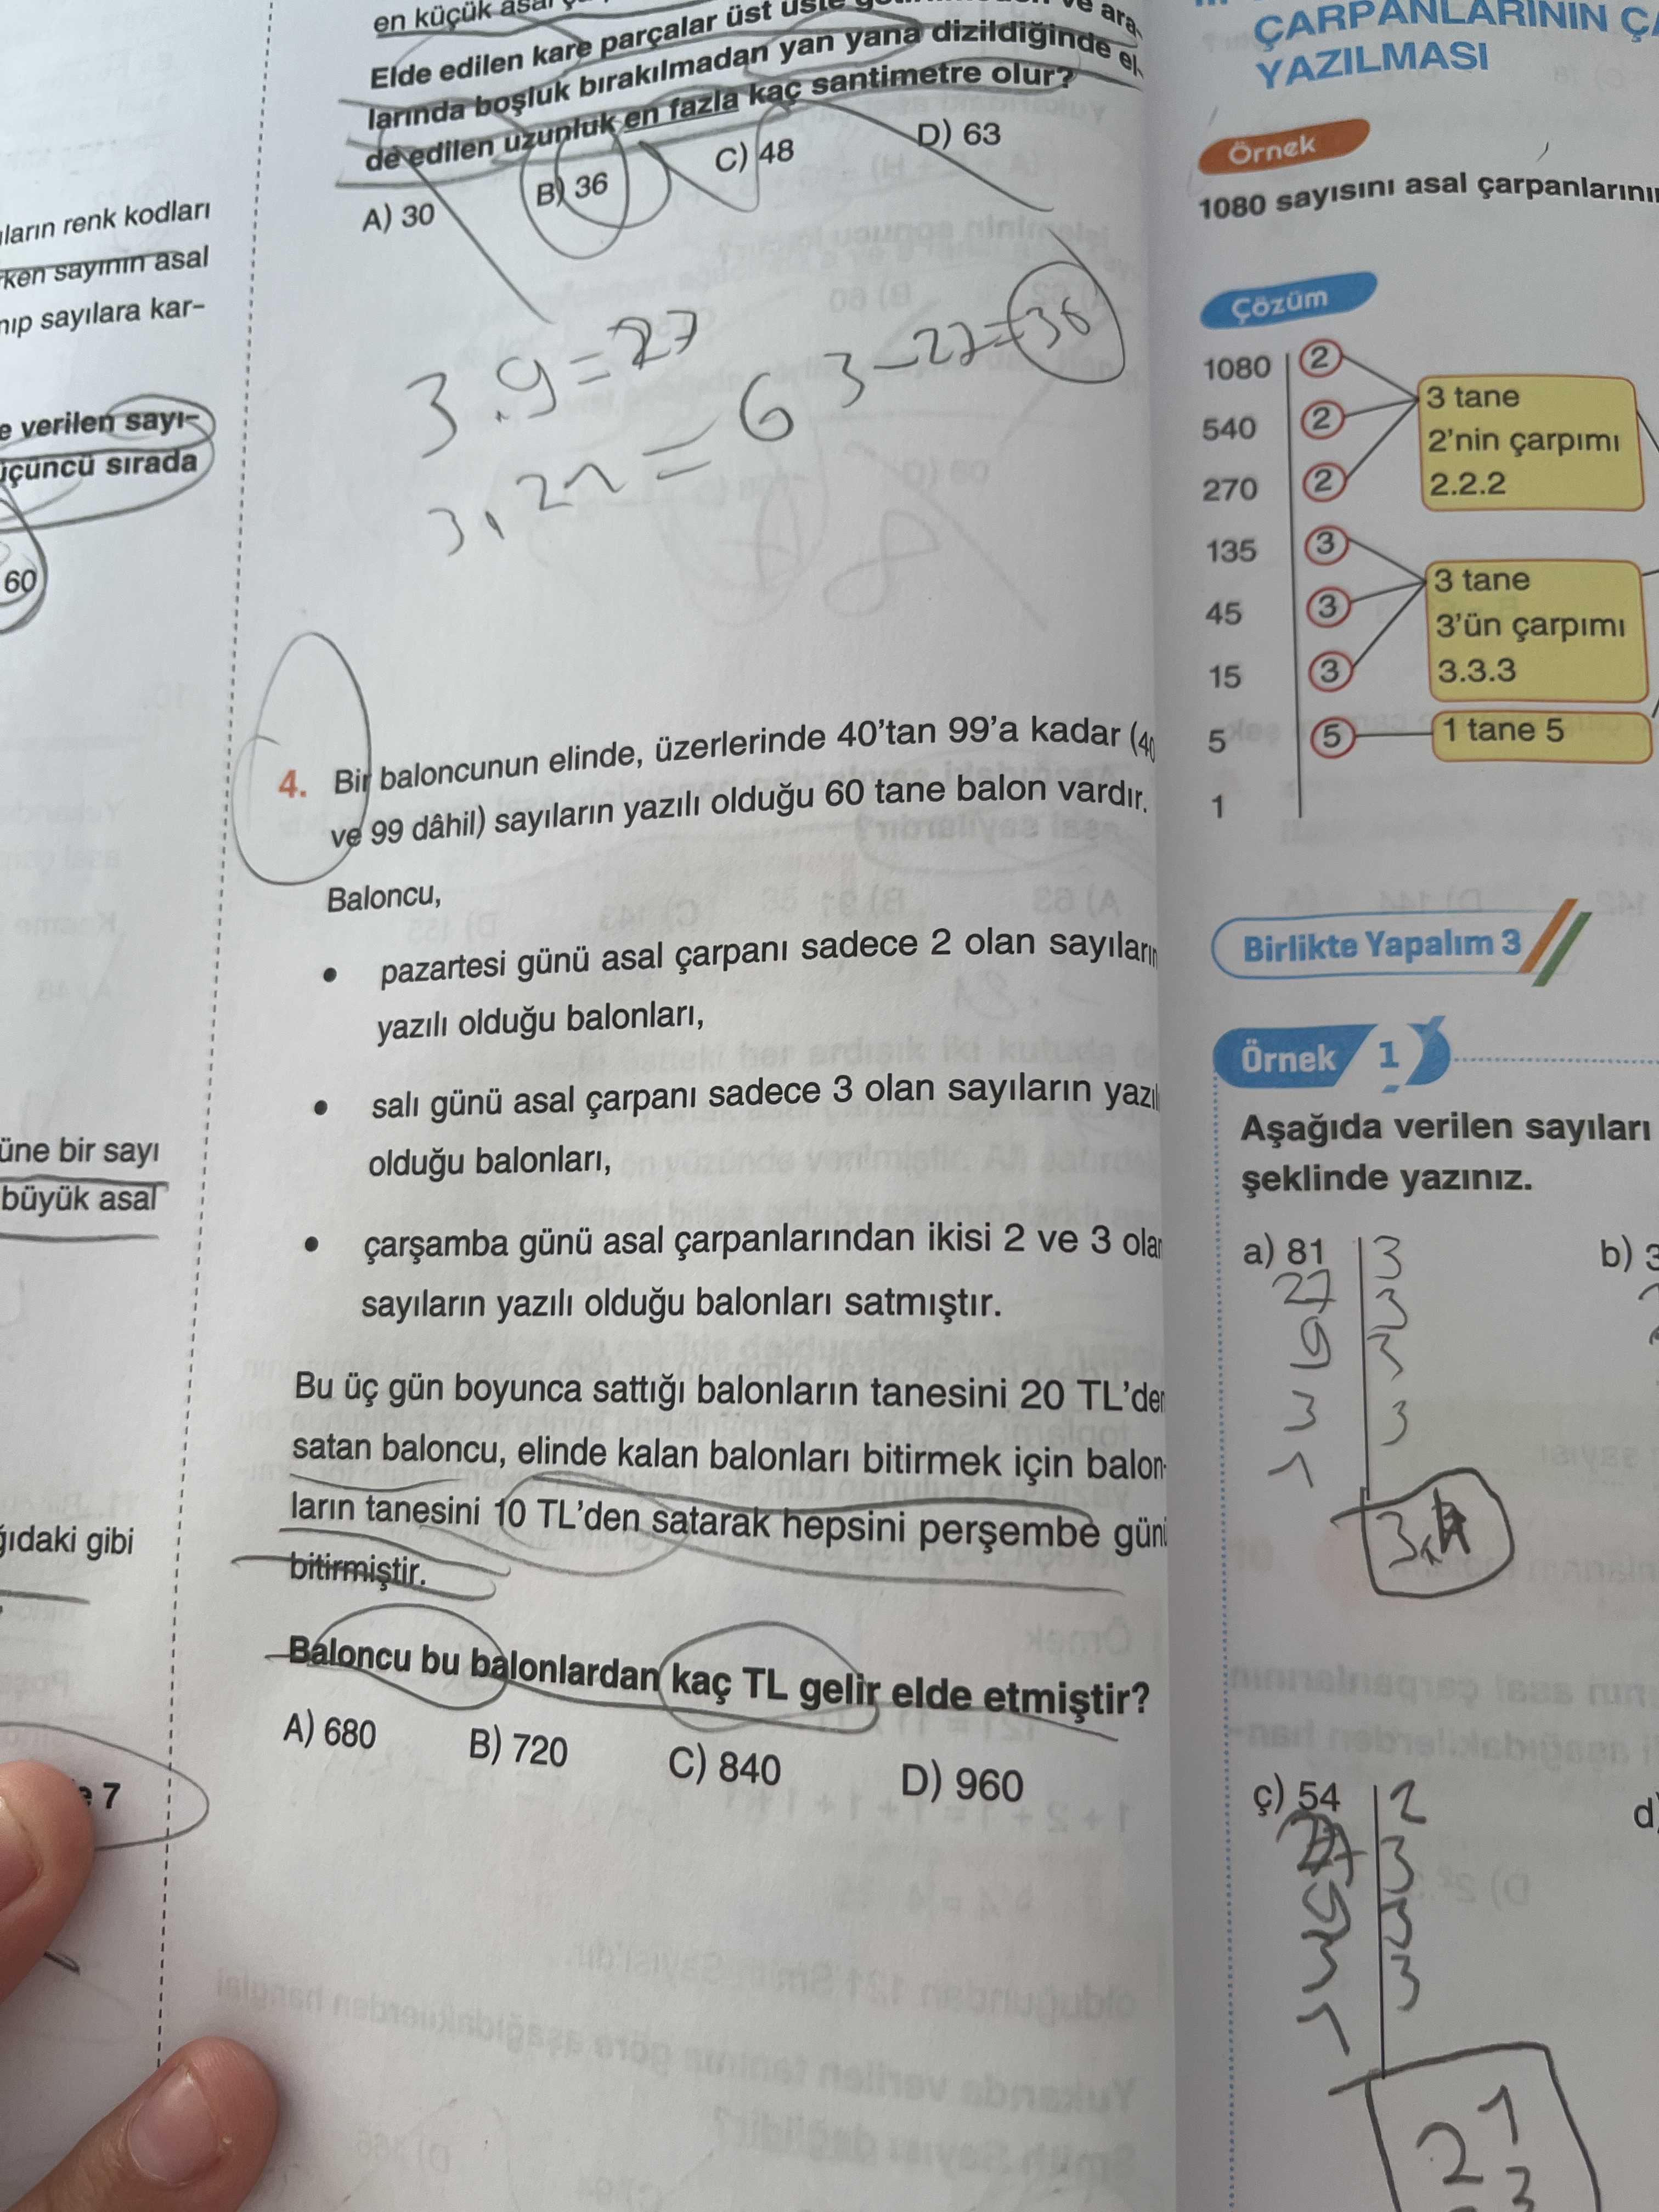 en küçük
Elde edilen kare parçalar üst üste
larında boşluk bırakılmadan yan yana dizildiğinde el
de edilen uzunluk en fazla kaç santimetre olur?
A) 30
B) 36
C) 48
D) 63
3.9=27
3.21=63-27=36
ların renk kodları
rken sayının asal
nıp sayılara kar-
e verilen sayı-
üçüncü sırada
60
üne bir sayı
büyük asal
ğıdaki gibi
e 7
4. Bir baloncunun elinde, üzerlerinde 40'tan 99'a kadar (40
ve 99 dâhil) sayıların yazılı olduğu 60 tane balon vardır.
Baloncu,
• pazartesi günü asal çarpanı sadece 2 olan sayıların
yazılı olduğu balonları,
• salı günü asal çarpanı sadece 3 olan sayıların yazıl
olduğu balonları,
• çarşamba günü asal çarpanlarından ikisi 2 ve 3 olan
sayıların yazılı olduğu balonları satmıştır.
Bu üç gün boyunca sattığı balonların tanesini 20 TL'den
satan baloncu, elinde kalan balonları bitirmek için balon-
ların tanesini 10 TL'den satarak hepsini perşembe günü
bitirmiştir.
Baloncu bu balonlardan kaç TL gelir elde etmiştir?
A) 680
B) 720
C) 840
D) 960
ÇARPANLARININ Ç
YAZILMASI
Örnek
1080 sayısını asal çarpanlarını
Çözüm
1080 2
540 2
270 2
135 3
45 3
15 3
5 5
1
3 tane
2'nin çarpımı
2.2.2
3 tane
3'ün çarpımı
3.3.3
1 tane 5
Birlikte Yapalım 3
Örnek 1
Aşağıda verilen sayıları
şeklinde yazınız.
a) 81 3
27 3
9 3
3 3
1
b) 3
ç) 54 2
27 3
9 3
3 3
1
d)